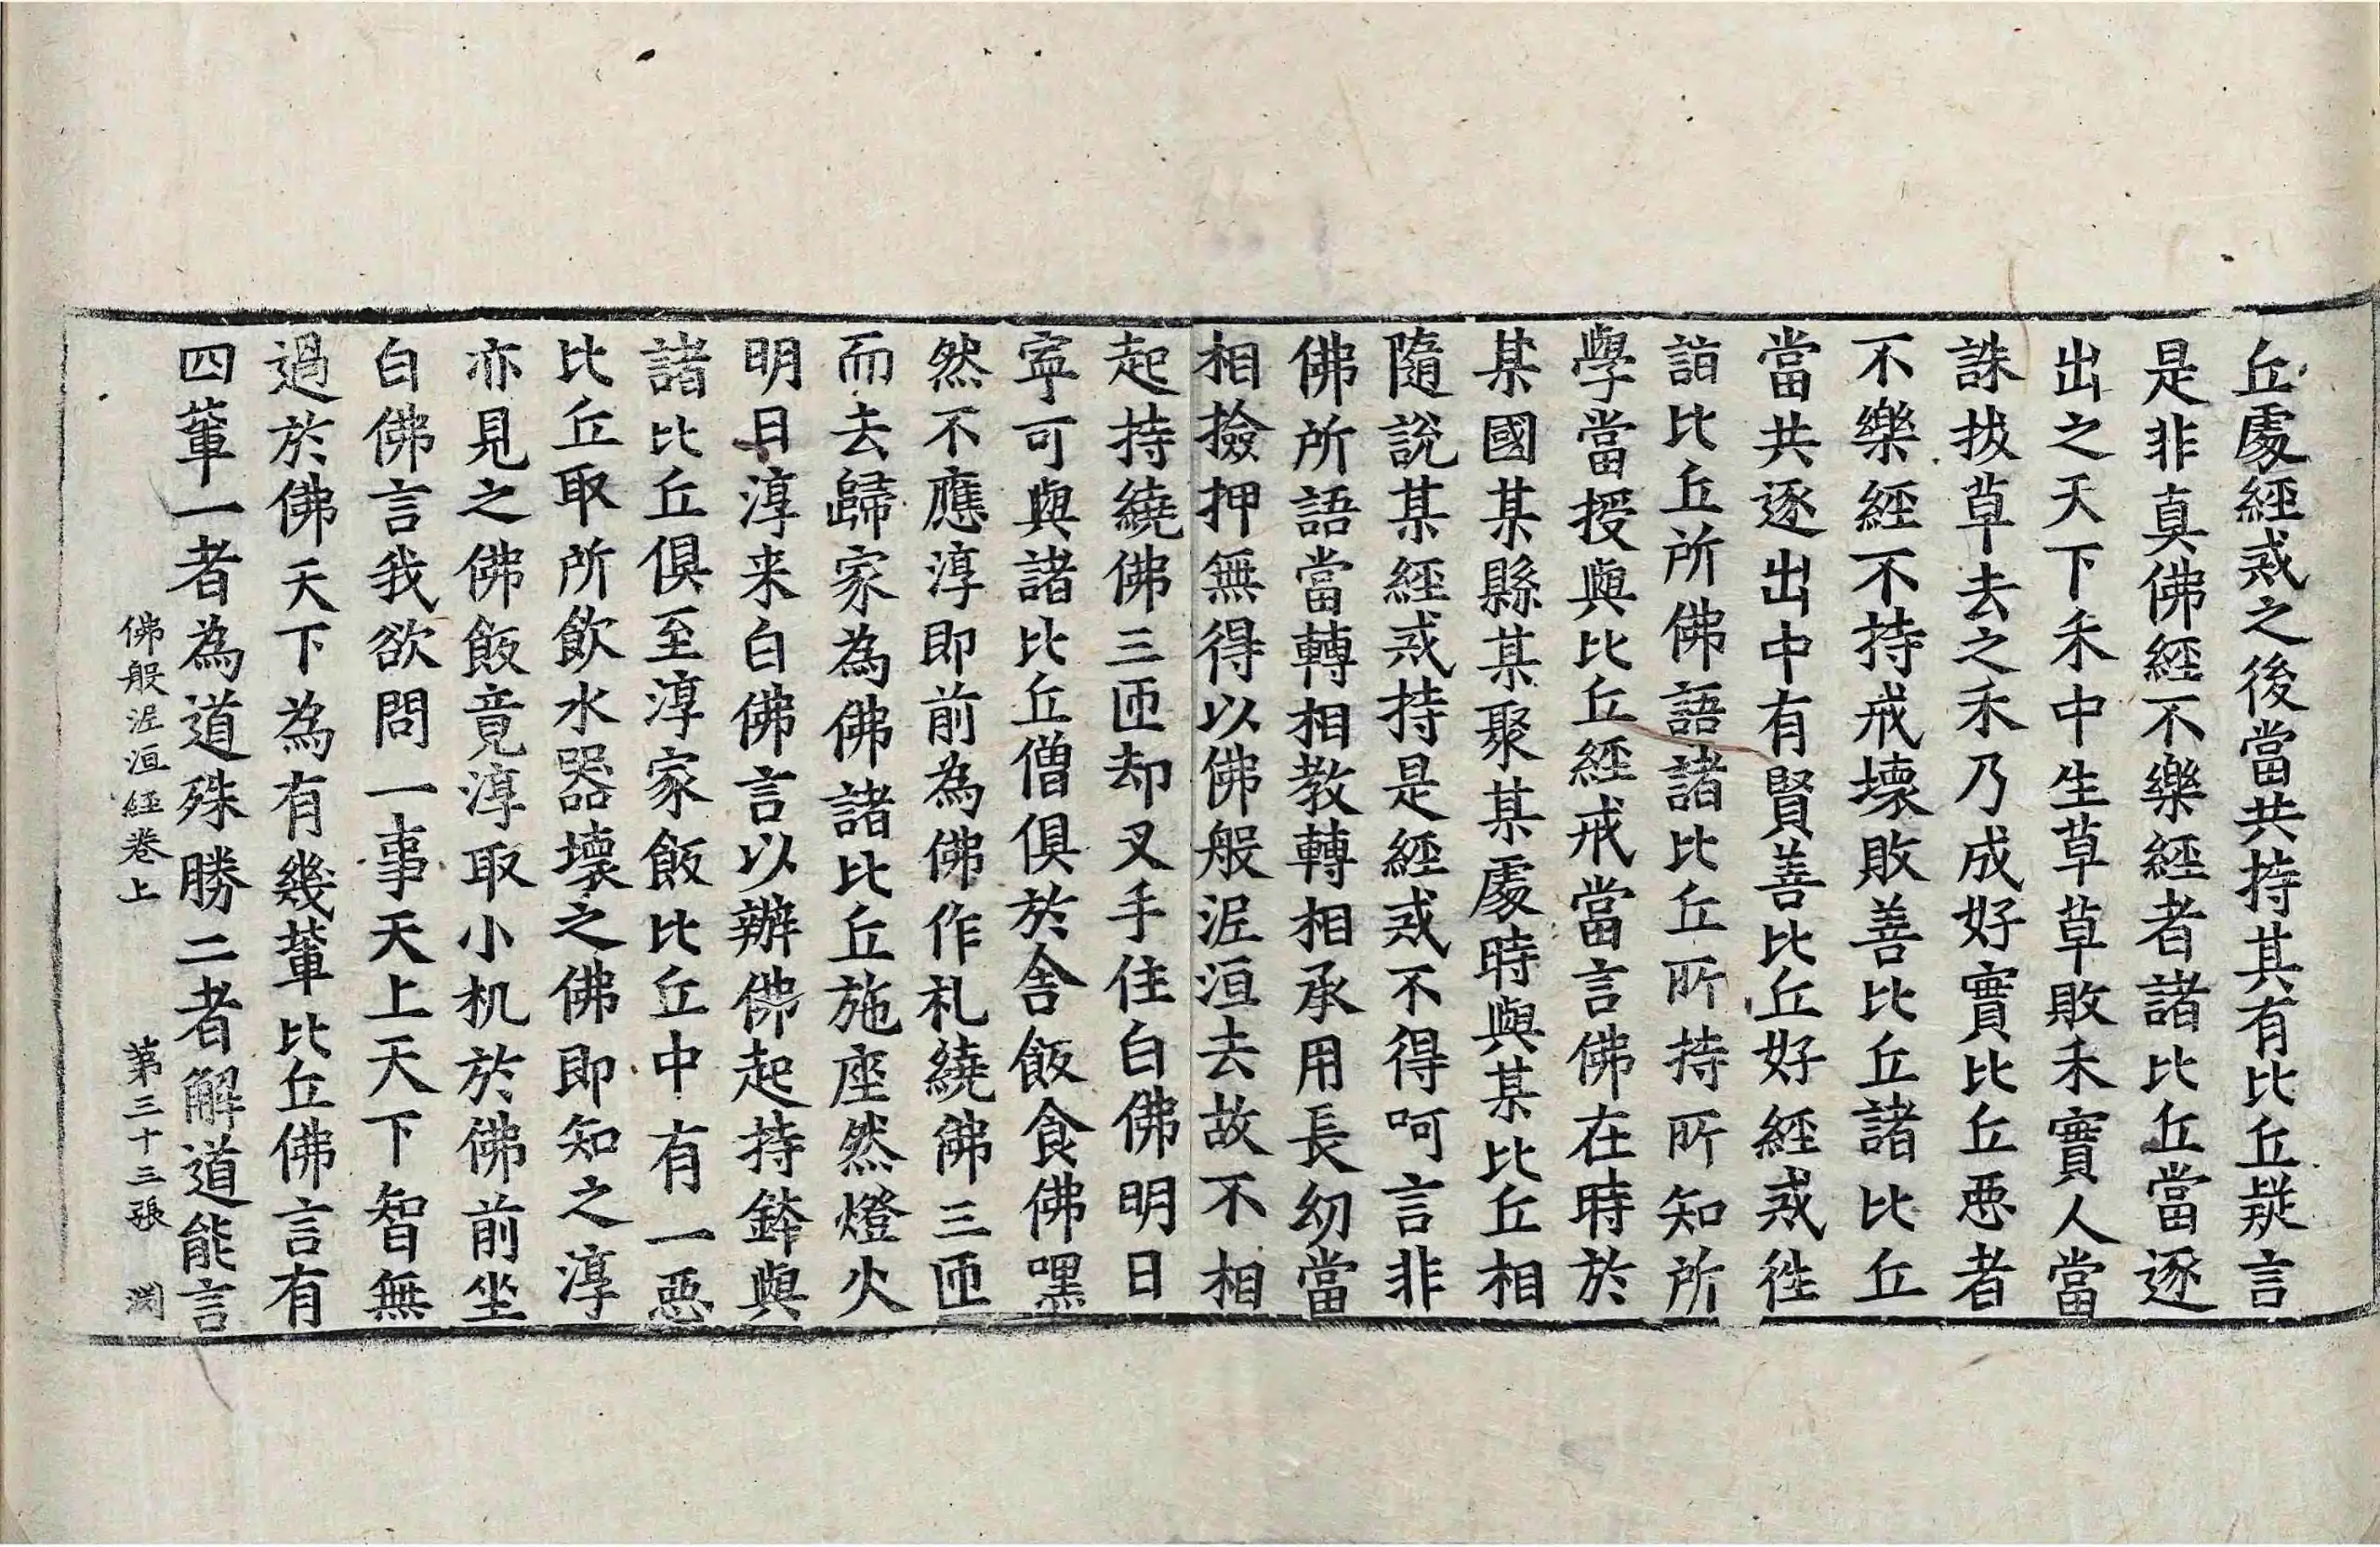 丘處經戒之後當共持其有比丘疑言
是非真佛經不樂經者諸比丘當逐
出之天下禾中生草草敗禾實人當
誅拔草去之禾乃成好實比丘惡者
不樂經不持戒壞敗善比丘諸比丘
當共逐出中有賢善比丘好經戒徃
詣比丘所佛語諸比丘所持所知所
學當授與比丘經戒當言佛在時於
某國某縣某聚某處時與某比丘相
隨說某經戒持是經戒不得呵言非
佛所語當轉相教轉相承用長幼當
相撿押無得以佛般泥洹去故不相
起持繞佛三匝却叉手住白佛明日
寧可與諸比丘僧俱於舍飯食佛嘿
然不應淳即前為佛作礼繞佛三匝
而去歸家為佛諸比丘施座然燈火
明日淳来白佛言以辦佛起持鉢與
諸比丘俱至淳家飯比丘中有一惡
比丘取所飲水器壞之佛即知之淳
亦見之佛飯竟淳取小机於佛前坐
白佛言我欲問一事天上天下智無
過於佛天下為有幾軰比丘佛言有
四軰一者為道殊勝二者解道能言
佛般泥洹經卷上 第三十三張 渕